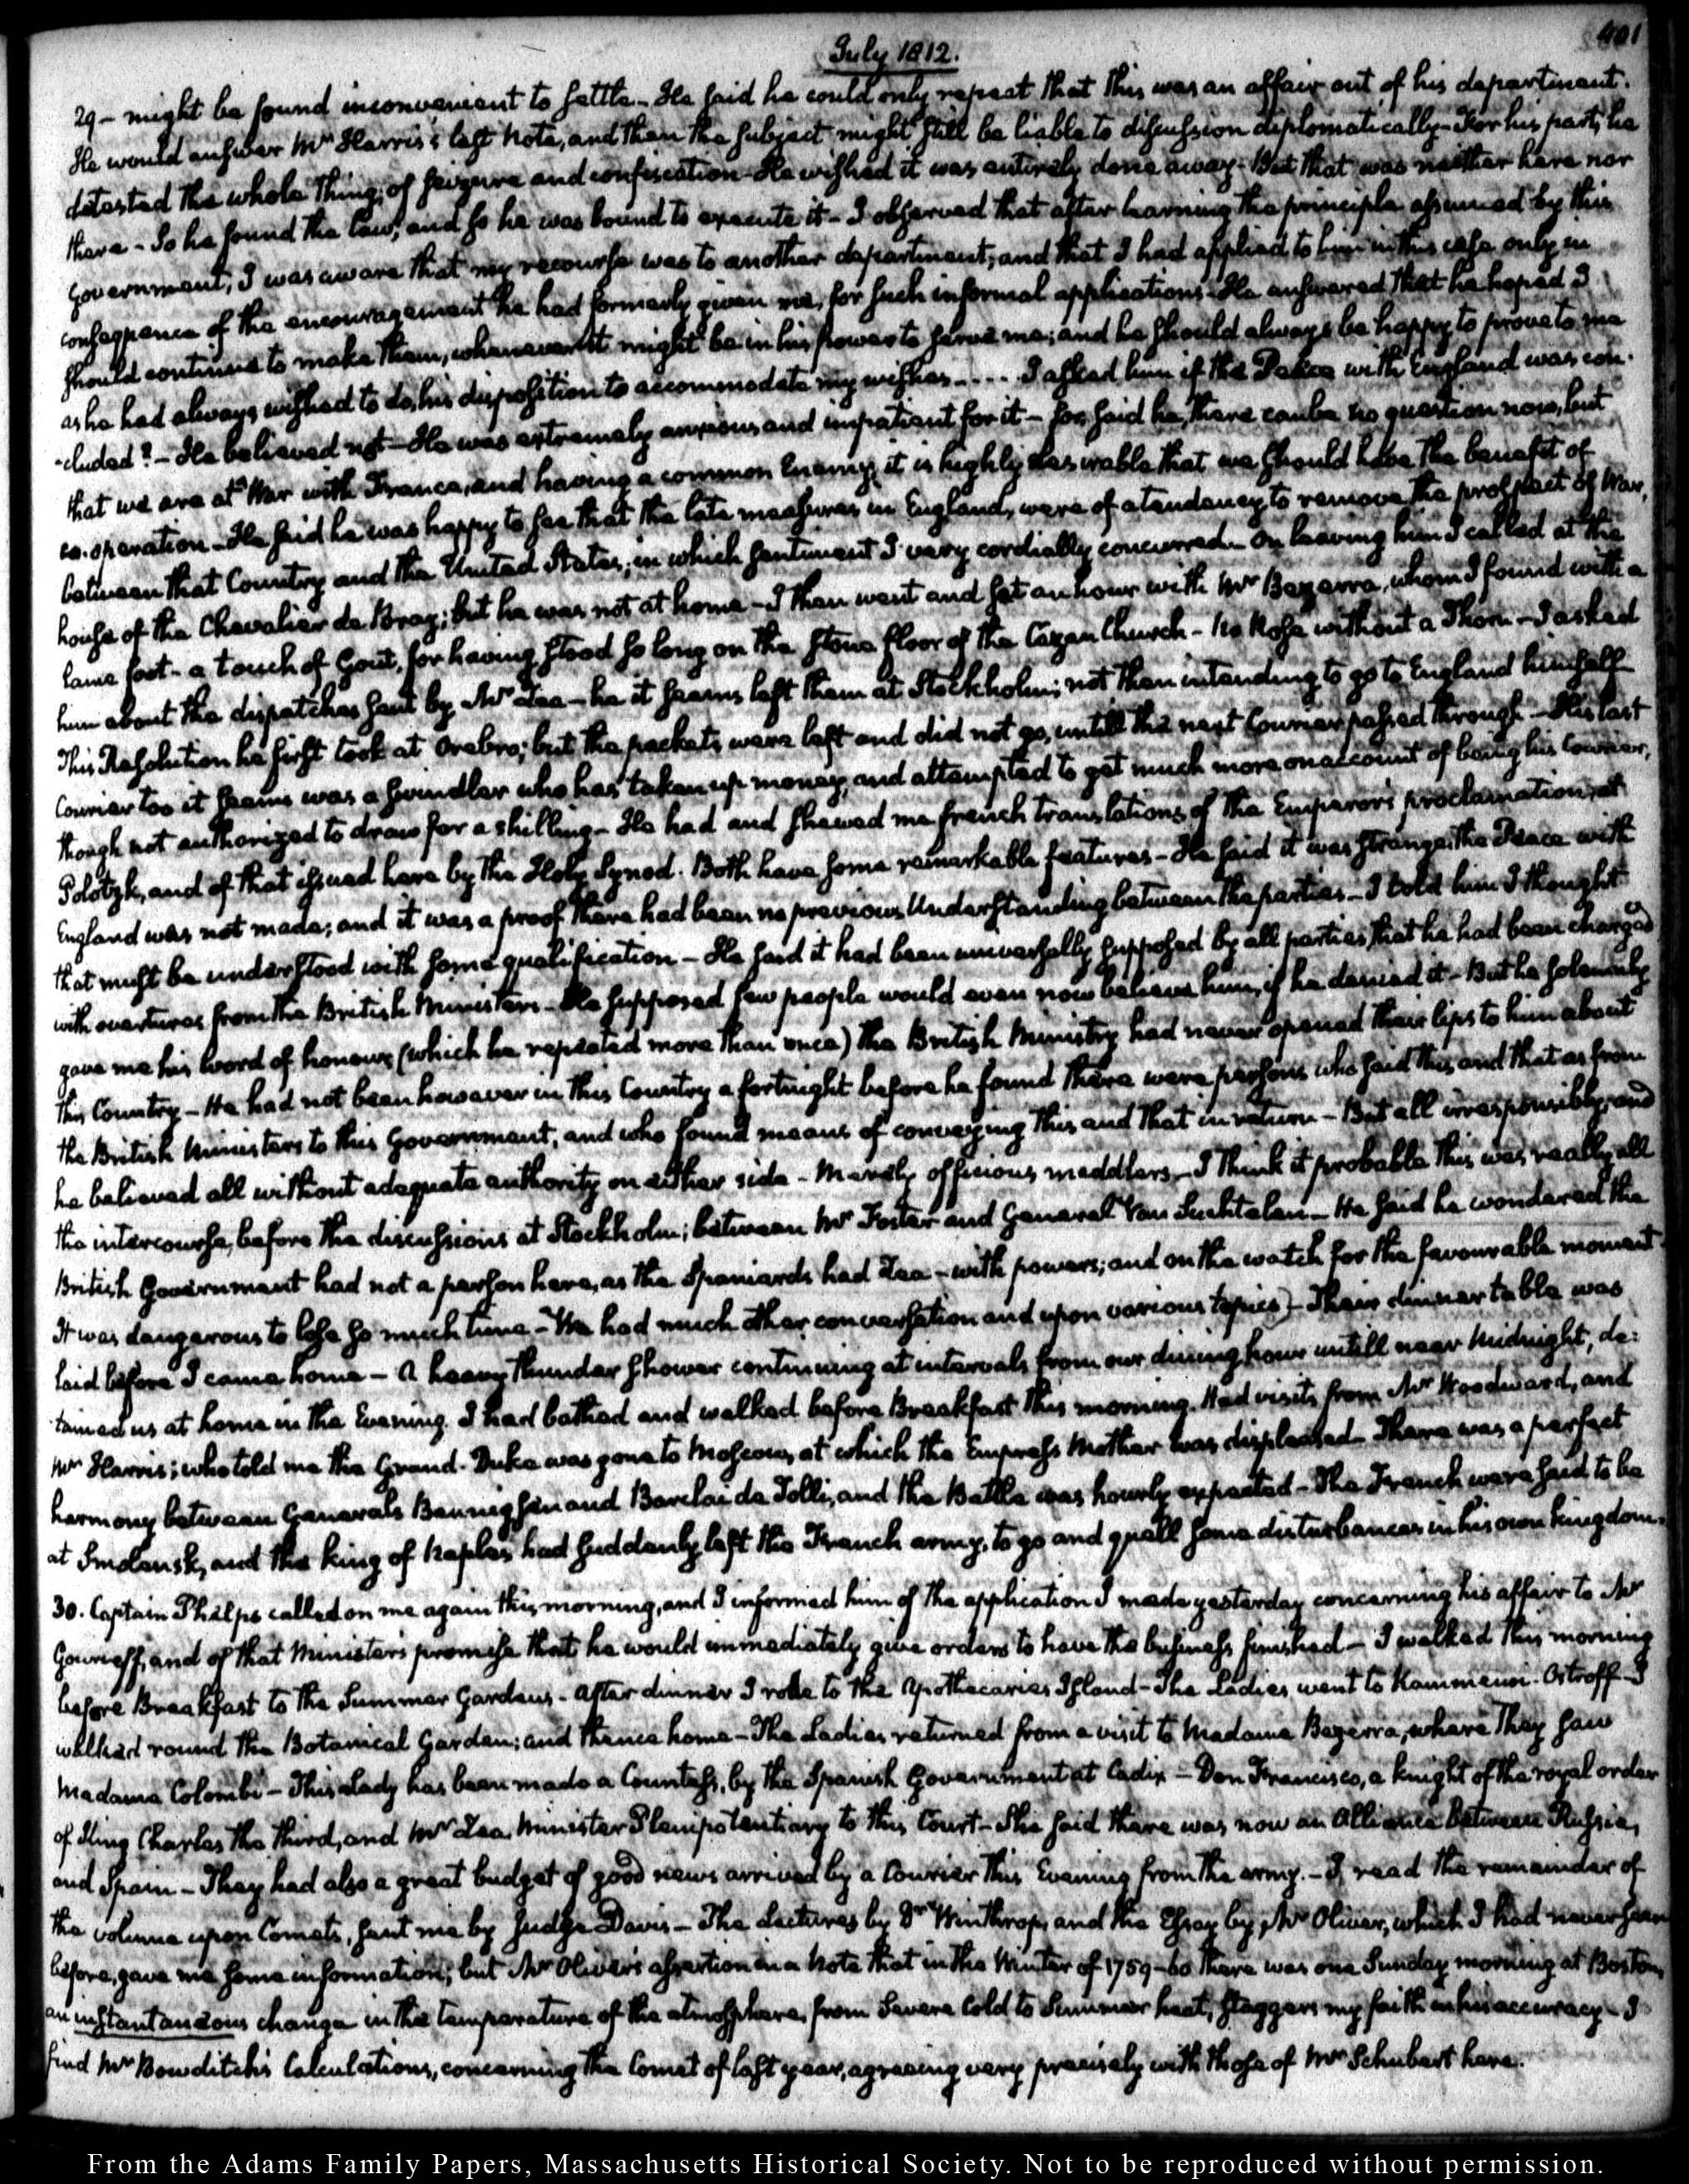 401
July 1812.
29 - might be found inconvenient to settle - He said he could only repeat that this was an affair out of his department.
He would answer Mr. Harris's last Note, and then the subject might still be liable to discussion diplomatically - For his part, he
detested the whole thing, of seizure and confiscation - He wished it was entirely done away - But that was neither here nor
there - So he found the Law, and so he was bound to execute it - I observed that after learning the principle assumed by this
Government, I was aware that my recourse was to another department; and that I had applied to him in this case only in
consequence of the encouragement he had formerly given me, for such informal applications - He answered that he hoped I
should continue to make them, whenever it might be in his power to serve me; and he should always be happy to prove to me
as he had always wished to do, his disposition to accommodate my wishes.... I asked him if the Peace with England was con-
-cluded? - He believed not - He was extremely anxious and impatient for it - for, said he, there can be no question now, but
that we are at War with France, and having a common Enemy, it is highly desirable that we should have the benefit of
co-operation - He said he was happy to see that the late measures in England, were of a tendency to remove the prospect of War,
between that Country and the United States; in which sentiment I very cordially concurred - On leaving him I called at the
house of the Chevalier de Bray; but he was not at home - I then went and sat an hour with Mr Bezerra, whom I found with a
lame foot - a touch of Gout, for having stood so long on the stone floor of the Cazan Church - No Rose without a Thorn - I asked
him about the dispatches sent by Mr Zea - he it seems left them at Stockholm; not then intending to go to England himself
This Resolution he first took at Orebro; but the packets were left and did not go, untill the next Courier passed through - His last
Courier too it seems was a swindler who has taken up money, and attempted to get much more on account of being his Courier,
though not authorized to draw for a shilling - He had and shewed me french translations of the Emperor's proclamation, at
Polotzk, and of that issued here by the Holy Synod. Both have some remarkable features - He said it was strange, the Peace with
England was not made; and it was a proof there had been no previous Understanding between the parties - I told him I thought
that must be understood with some qualification - He said it had been universally supposed by all parties that he had been charged
with overtures from the British Ministers - He supposed few people would even now believe him, if he denied it - But he solemnly
gave me his word of honour, (which he repeated more than once) the British Ministry had never opened their lips to him about
this Country - He had not been however in this Country a fortnight before he found there were persons who said this and that as from
the British Ministers to this Government, and who found means of conveying this and that in return - But all irresponsibly, and
he believed all without adequate authority on either side - Merely officious meddlers - I think it probable this was really all
the intercourse, before the discussions at Stockholm; between Mr Foster and General Van Suchtelen - He said he wondered the
British Government had not a person here, as the Spaniards had Zea - with powers; and on the watch for the favourable moment
It was dangerous to lose so much time - We had much other conversation and upon various topics - Their dinner table was
laid before I came home - A heavy thunder shower continuing at intervals from our dining hour untill near Midnight, de-
tained us at home in the Evening. I had bathed and walked before Breakfast this morning. Had visits from Mr Woodward, and
Mr Harris; who told me the Grand-Duke was gone to Moscow, at which the Empress Mother was displeased - There was a perfect
harmony between Generals Bennigsen and Barclai de Tolli, and the Battle was hourly expected - The French were said to be
at Smolensk, and the king of Naples had suddenly left the French army, to go and quell some disturbances in his own kingdom.
30. Captain Phelps called on me again this morning, and I informed him of the application I made yesterday concerning his affair to Mr
Gourieff, and of that Minister's promise that he would immediately give orders to have the business finished - I walked this morning
before Breakfast to the Summer Gardens - After dinner I rode to the Apothecaries Island - The Ladies went to Kammenoi-Ostroff - I
walked round the Botanical Garden; and thence home - The Ladies returned from a visit to Madame Bezerra, where they saw
Madame Colombi - This Lady has been made a Countess, by the Spanish Government at Cadix - Don Francisco, a knight of the royal order
of King Charles the third, and Mr Zea Minister Plenipotentiary to this Court - She said there was now an Alliance between Russia,
and Spain - They had also a great budget of good news arrived by a Courier this Evening from the army. - I read the remainder of
the volume upon Comets, sent me by Judge Davis - The Lectures by Dr Winthrop, and the Essay by Mr Oliver, which I had never seen
before, gave me some information; but Mr Oliver's assertion in a Note that in the Winter of 1759-60 there was one Sunday morning at Boston,
an instantaneous change in the temperature of the atmosphere, from Severe Cold to Summer heat, staggers my faith in his accuracy - I
find Mr Bowditch's Calculations, concerning the Comet of last year, agreeing very precisely with those of Mr Schubert here.
From the Adams Family Papers, Massachusetts Historical Society. Not to be reproduced without permission.